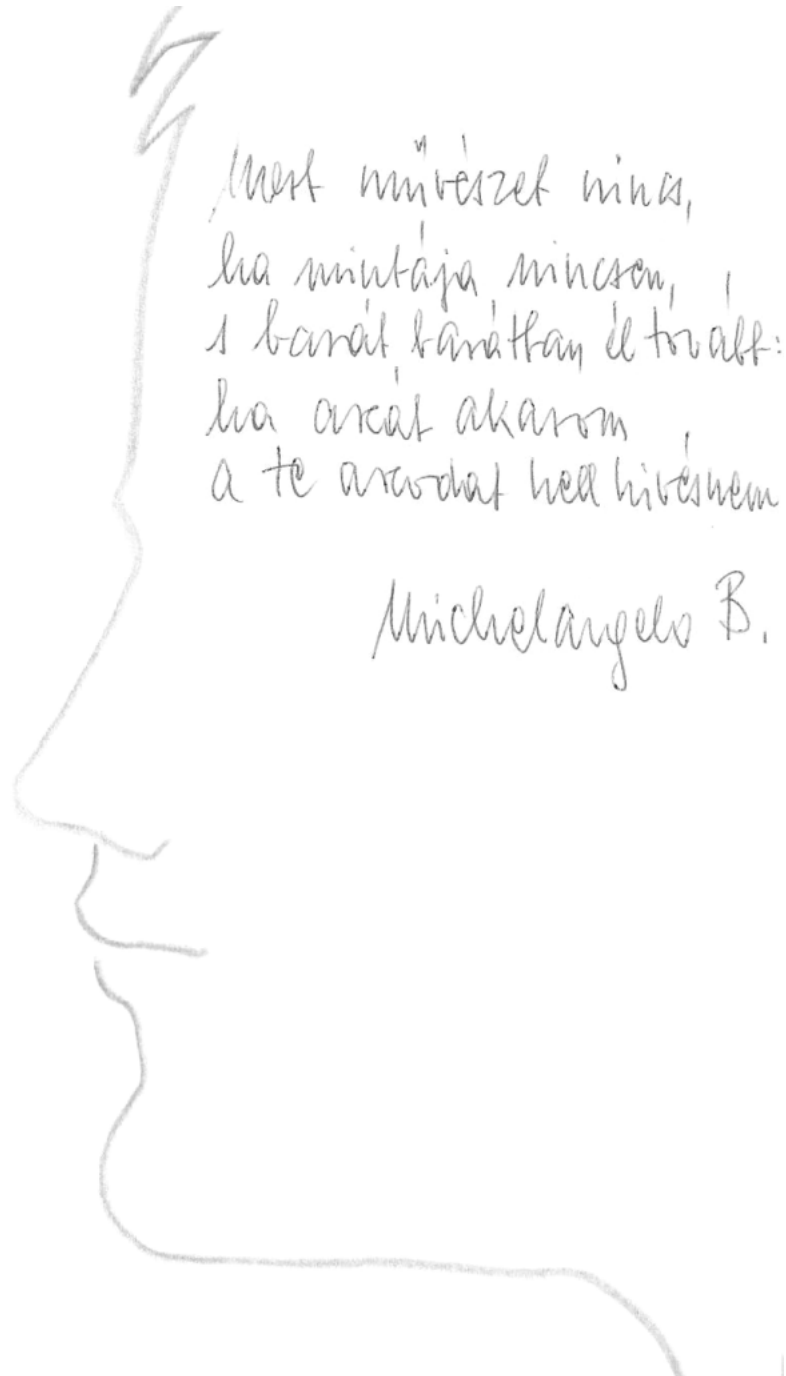 Mert művészet nincs,
ha mintája nincsen,
s barát barátban él tovább:
ha arcát akarom
a te arcodat kell hívésnem
Michelangelo B.